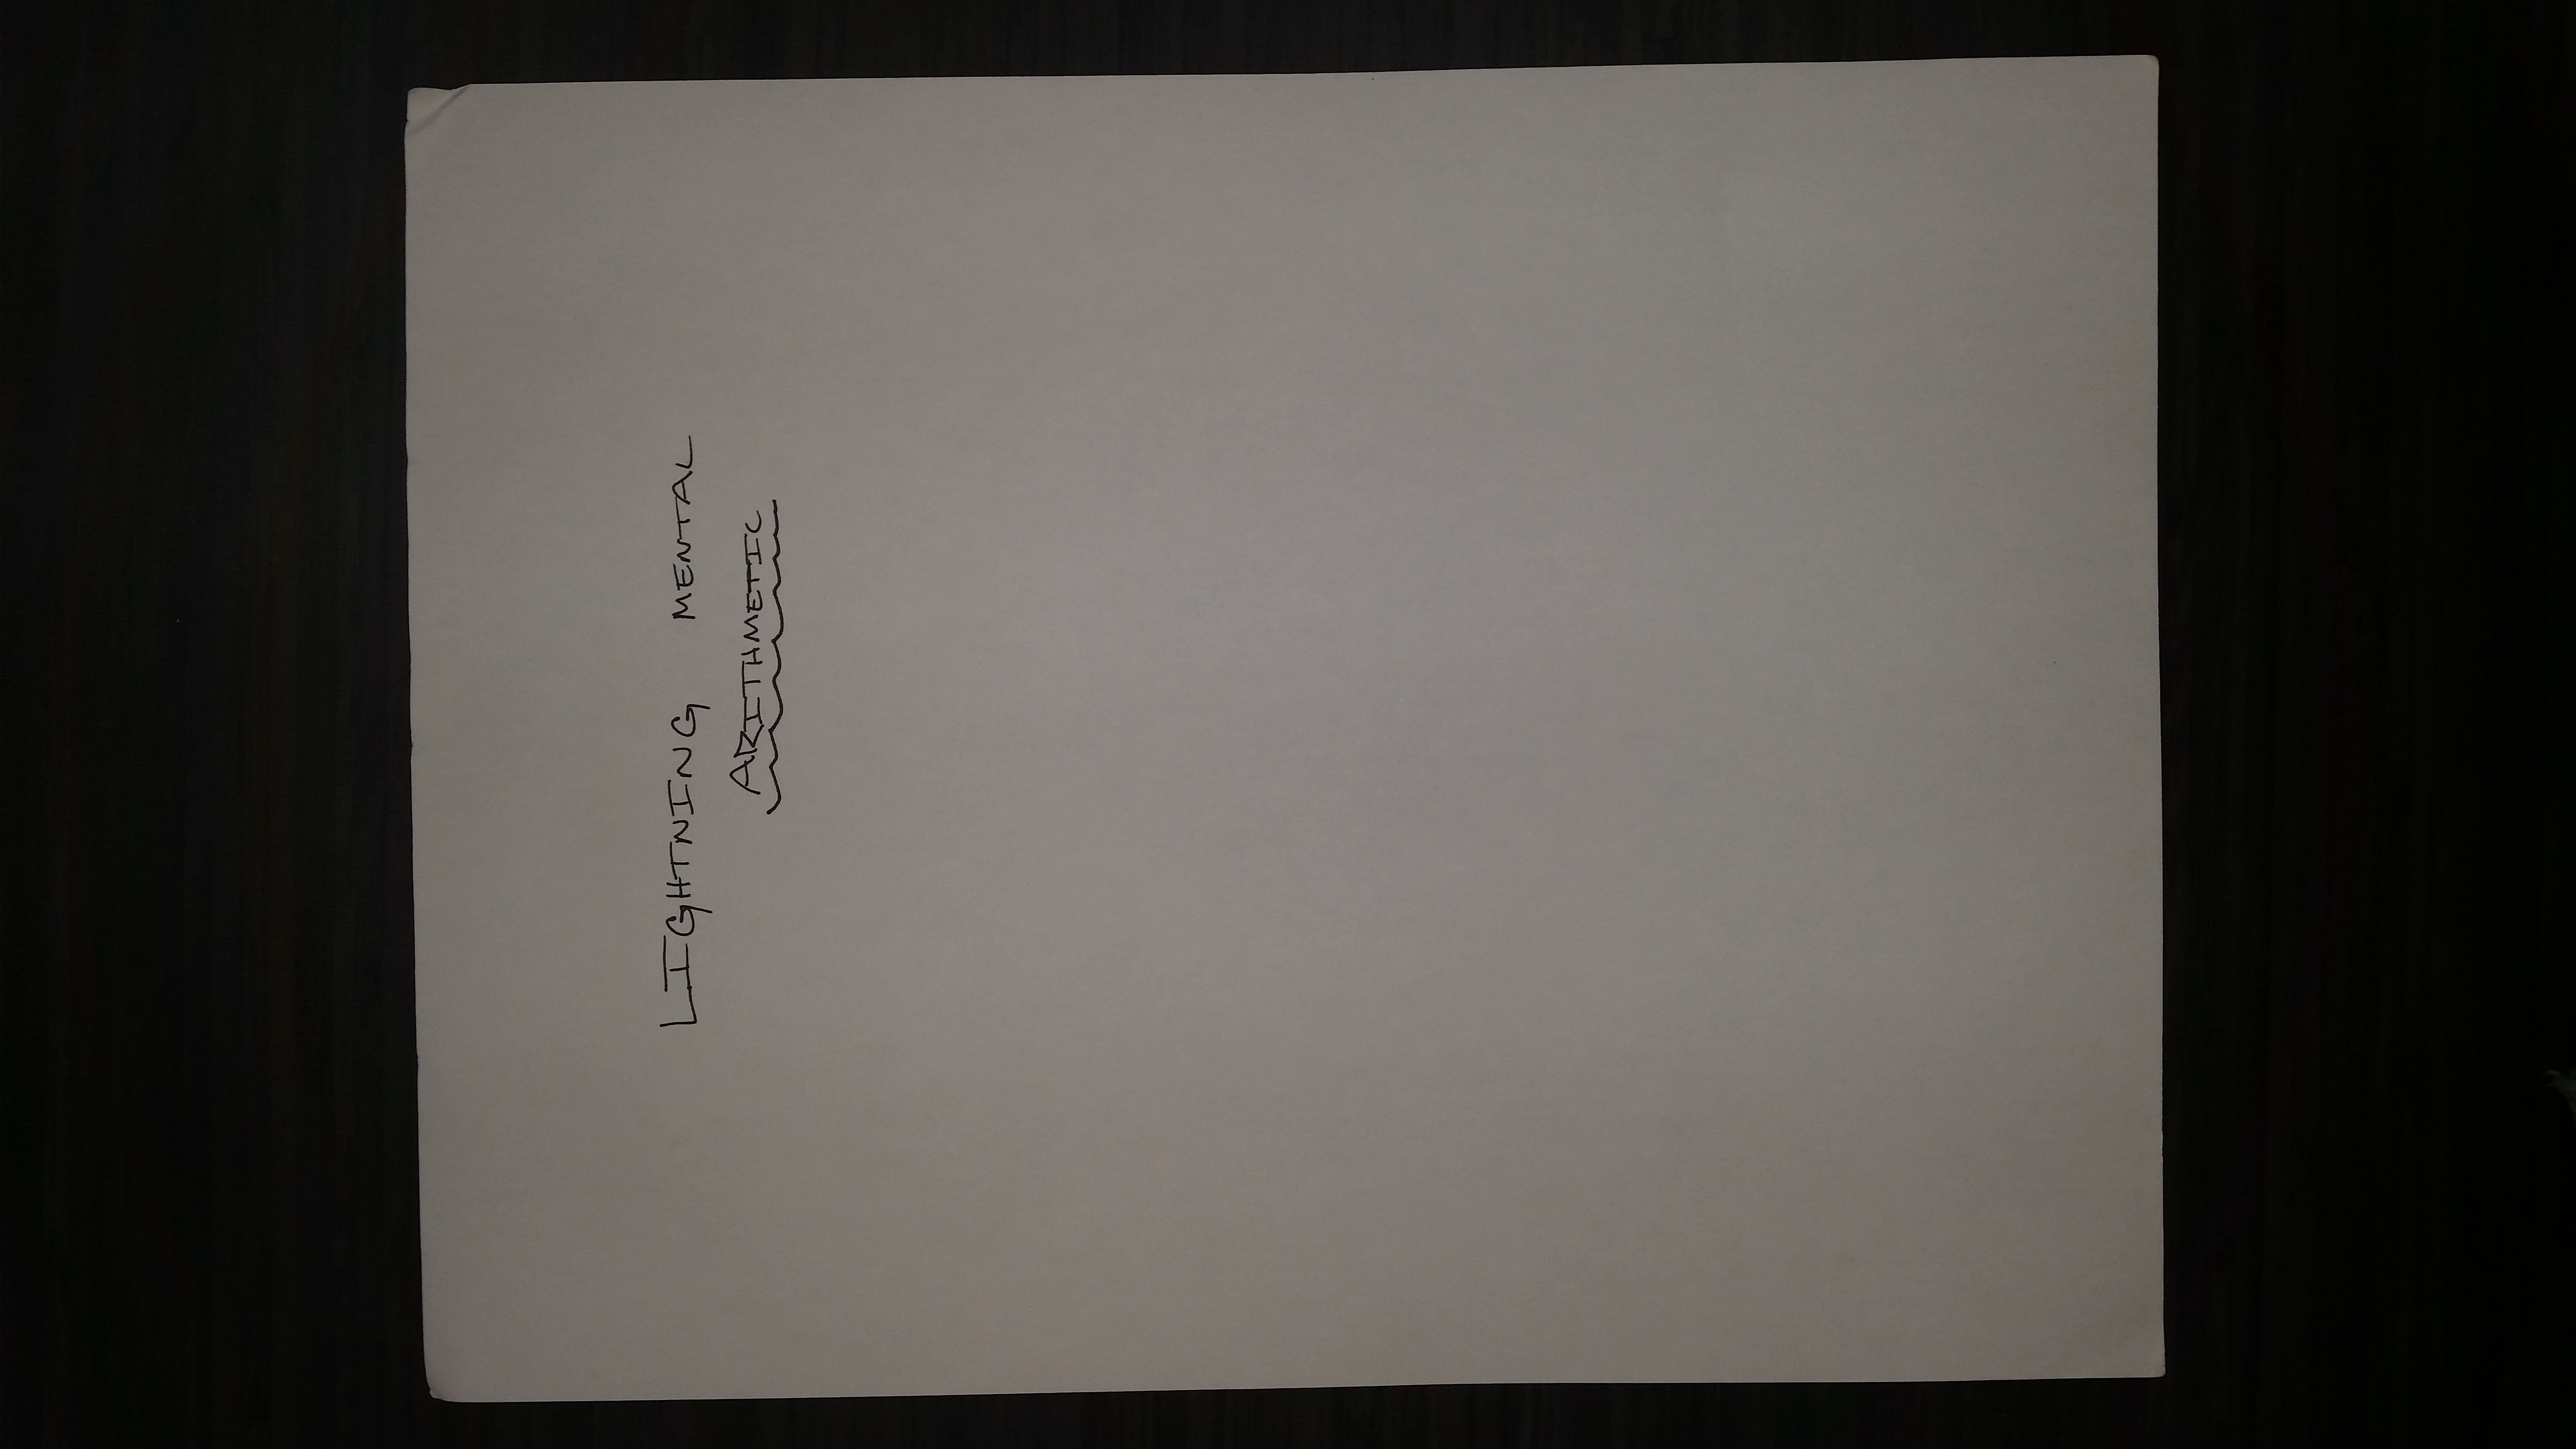 LIGHTNING MENTAL
ARITHMETIC